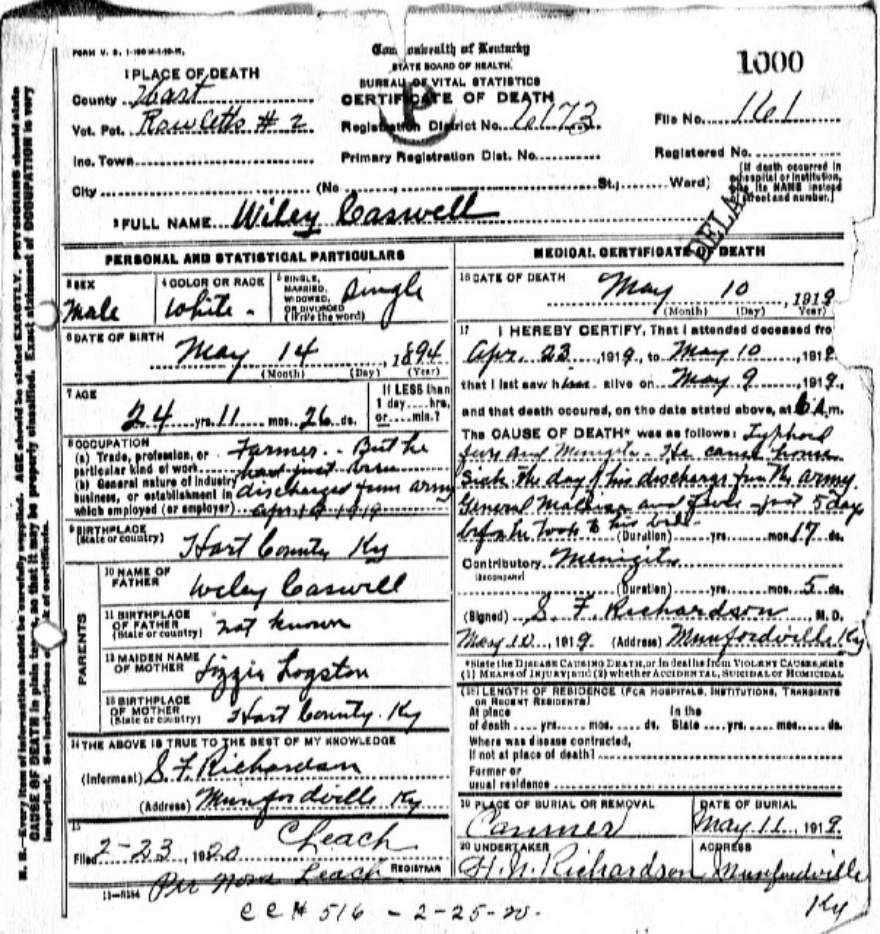 FORM V. S. 1-
Commonwealth of Kentucky
STATE BOARD OF HEALTH.
BUREAU OF VITAL STATISTICS
CERTIFICATE OF DEATH
1000
1 PLACE OF DEATH
County Hart
Vot. Pct. Rowletts # 2
Registration District No. 6173
File No. 161
Inc. Town
Primary Registration Dist. No.
Registered No.
City (No St.; Ward)
[If death occurred in
hospital or institution,
its NAME instead
of street and number.]
FULL NAME Wiley Caswell
PERSONAL AND STATISTICAL PARTICULARS
3 SEX
Male
4 COLOR OR RACE
White -
5 SINGLE,
MARRIED,
WIDOWED,
OR DIVORCED
(Write the word)
Single
6 DATE OF BIRTH
May 14, 1894
(Month) (Day) (Year)
7 AGE
24 yrs. 11 mos. 26 ds.
If LESS than
1 day.....hrs.
or.....min.?
8 OCCUPATION
(a) Trade, profession, or
particular kind of work
(b) General nature of industry
business, or establishment in
which employed (or employer)
Farmer - But he
had just been
discharged from army
Apr 1919
9 BIRTHPLACE
(State or country)
Hart County Ky
PARENTS
10 NAME OF
FATHER
Wiley Caswell
11 BIRTHPLACE
OF FATHER
(State or country)
not known
12 MAIDEN NAME
OF MOTHER
Lizzie Logston
13 BIRTHPLACE
OF MOTHER
(State or country)
Hart County. Ky
14 THE ABOVE IS TRUE TO THE BEST OF MY KNOWLEDGE
(Informant) S. F. Richardson
(Address) Munfordville Ky
15
Filed 2-23, 1920 C Leach
REGISTRAR
Per Nora Leach
11-5184
MEDICAL CERTIFICATE OF DEATH
16 DATE OF DEATH
May 10, 1919
(Month) (Day) Year)
17 I HEREBY CERTIFY, That I attended deceased fro
Apr. 23, 1919, to May 10, 1919
that I last saw him alive on May 9, 1919,
and that death occured, on the date stated above, at 6 A.m.
The CAUSE OF DEATH* was as follows: Typhoid
and He came home
Sick the day of his discharge from the army
General and just 5 days
before he took to his bed.
(Duration) yrs. mos. 17 ds.
Contributory
(SECONDARY)
(Duration) yrs. mos. 5 ds.
(Signed) S. F. Richardson, M. D.
May 10, 1919. (Address) Munfordville Ky
*State the DISEASE CAUSING DEATH, or in deaths from VIOLENT CAUSES, state
(1) MEANS OF INJURY; and (2) whether ACCIDENTAL, SUICIDAL or HOMICIDAL
18 LENGTH OF RESIDENCE (FOR HOSPITALS, INSTITUTIONS, TRANSIENTS
OR RECENT RESIDENTS)
At place In the
of death yrs. mos. ds. State yrs. mos. ds.
Where was disease contracted,
if not at place of death?
Former or
usual residence
19 PLACE OF BURIAL OR REMOVAL
Canmer
DATE OF BURIAL
May 11, 1919
20 UNDERTAKER
H. N. Richardson
ADDRESS
Munfordville
Ky
CC# 516 - 2-25-20.
N. B.—Every item of information should be carefully supplied. AGE should be stated EXACTLY. PHYSICIANS should state
CAUSE OF DEATH in plain terms, so that it may be properly classified. Exact statement of OCCUPATION is very
important. See instructions of certificate.